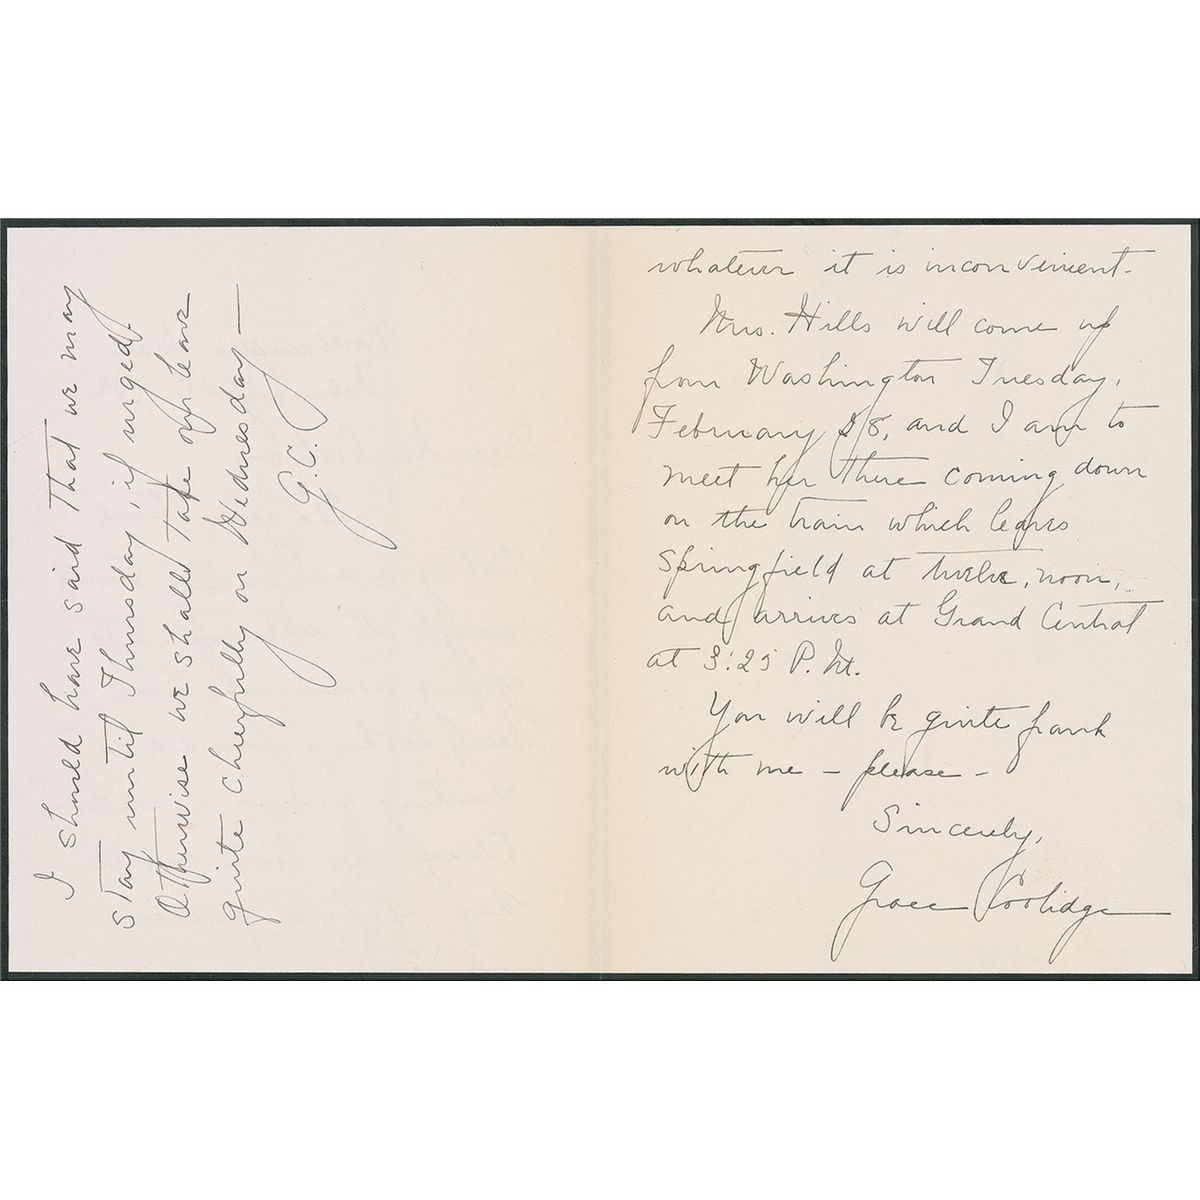 whatever it is inconvenient.
Mrs. Hills will come up
from Washington Tuesday,
February 28, and I am to
meet her there coming down
on the train which leaves
Springfield at twelve, noon,
and arrives at Grand Central
at 3:25 P.M.
You will be quite frank
with me - please -
Sincerely,
Grace Coolidge
I should have said that we may
stay until Thursday, if urged.
Otherwise we shall take our leave
quite cheerfully on Wednesday -
G.C.